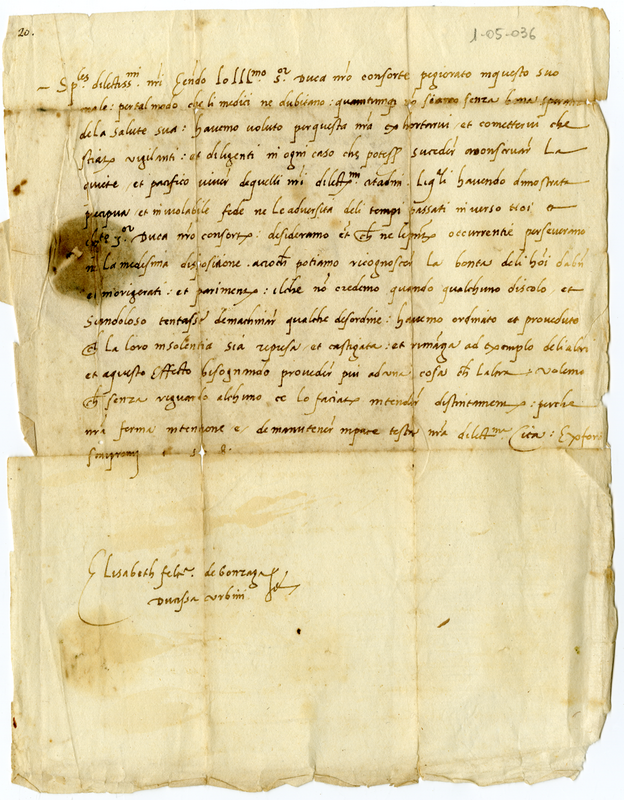 20.
1-05-036
Sp.les dilettiss.mi nri Essendo lo Ill.mo S.or Duca nro consorte pegiorato in questo suo
male: per tal modo che li medici ne dubitano: quantunque io senza bona speranza
de la salute sua: havemo voluto per questa nra exhortarvi et comettervi che
vigilanti: et diligenti in ogni caso che potess suceder a conservar La
quiete et pacifico viver de quelli nri dilett.mi citadini Li q.li havendo dimostrata
et inviolabile fede ne le adversita deli tempi passati in verso noi et
S.or Duca nro consorte: desideramo et ch ne le occurrentie perseverano
ne la medesima dispositione. acioch potiamo ricognoscer la bonta deli
et morigerati: et parimente: il che nõ credemo quando qualchuno discolo et
Scandoloso tentasse de machinar qualche desordine: havemo ordinato et proveduto
ch La loro insolentia sia represa et castigata: et rimãga ad exemplo de li altri
et a questo effetto bisognando proveder piu ad una cosa ch L altra: volemo
ch senza reguardo alchuno ce lo faciate intender distintamente: perche
nra ferma intencione e de manutener in pace testa nra dilett.ma Cita:
Elisabeth fel.a de Gonzaga
Ducissa Urbini